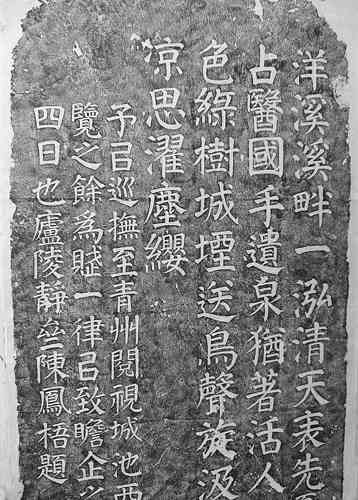 洋溪溪畔一泓清天表先
占醫國手遺泉猶著活人
色綠樹城堙送鳥聲旋汲
凉思濯塵纓
予㠯巡撫至青州閱視城池西
覽之餘為賦一律㠯致瞻企之
四日也廬陵靜亝陳鳳梧題